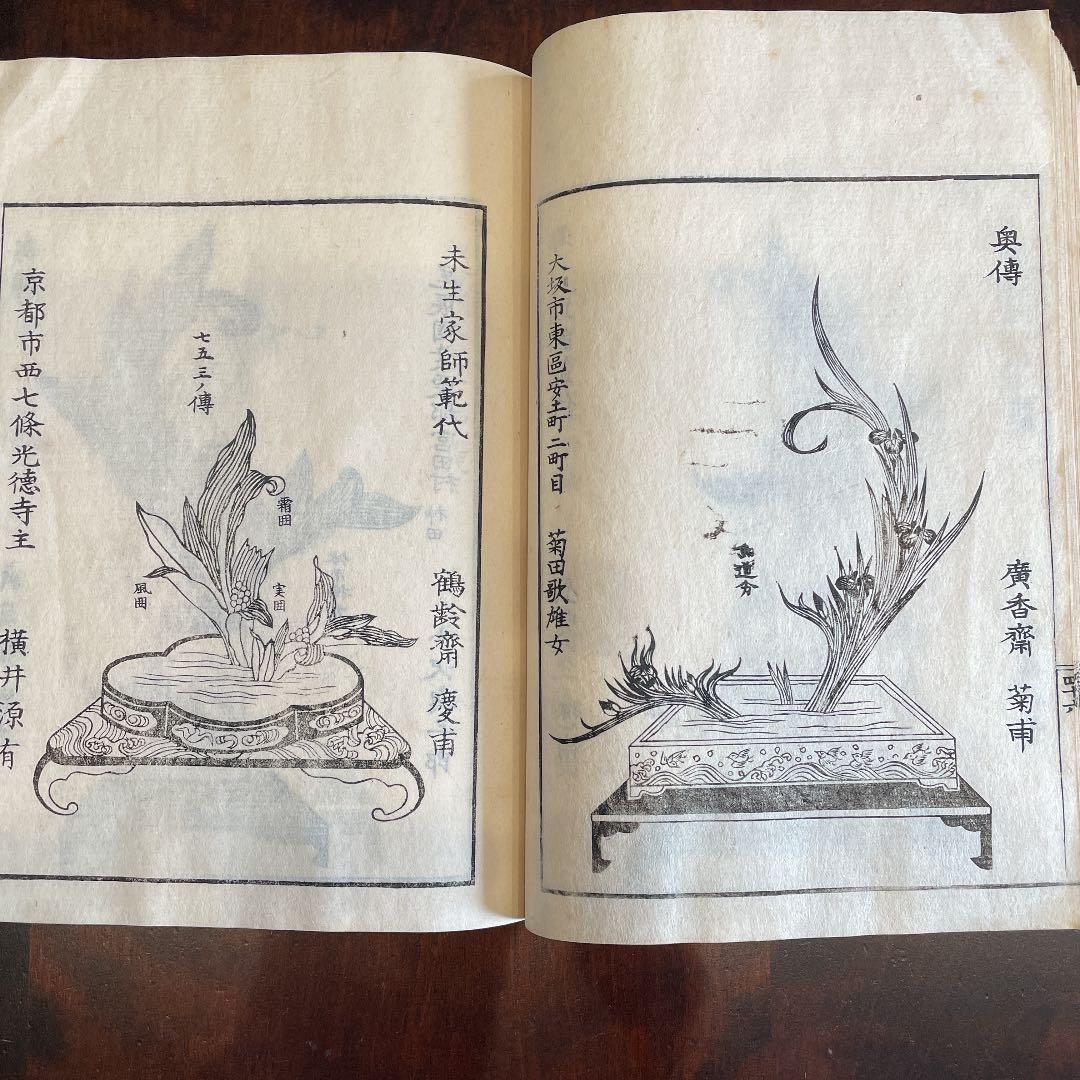 奥傳
廣香齋 菊甫
魚道分
大坂市東區安土町二町目 菊田歌雄女
四十六
未生家師範代
鶴齢齋 慶甫
七五三ノ傳
霜囲
実囲
風囲
京都市西七條光徳寺主
横井源有